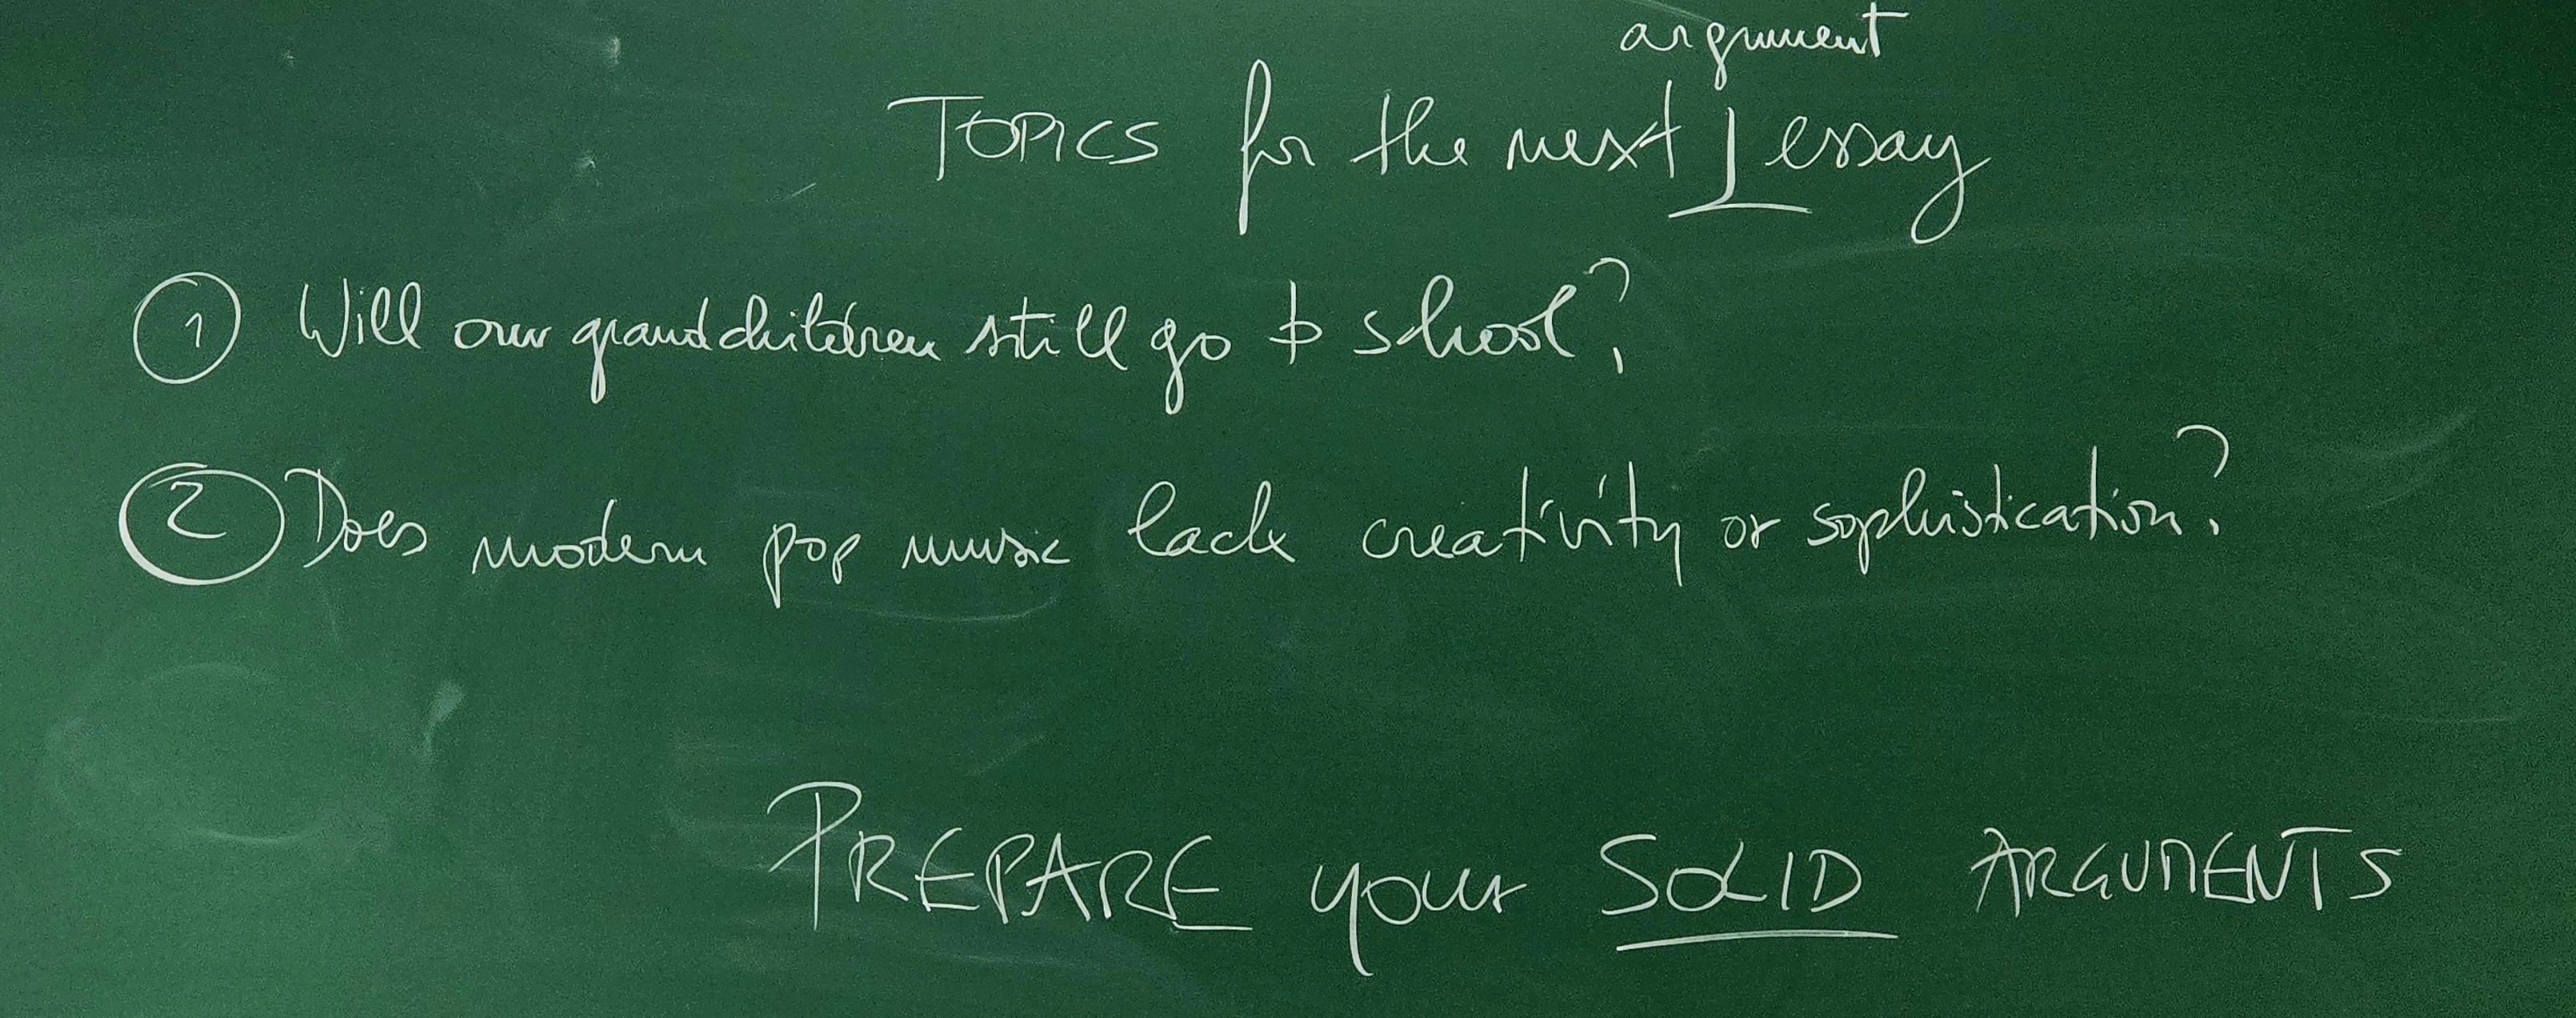 argument
TOPICS for the next essay
1 Will our grandchildren still go to school?
2 Does modern pop music lack creativity or sophistication?
PREPARE your SOLID ARGUMENTS